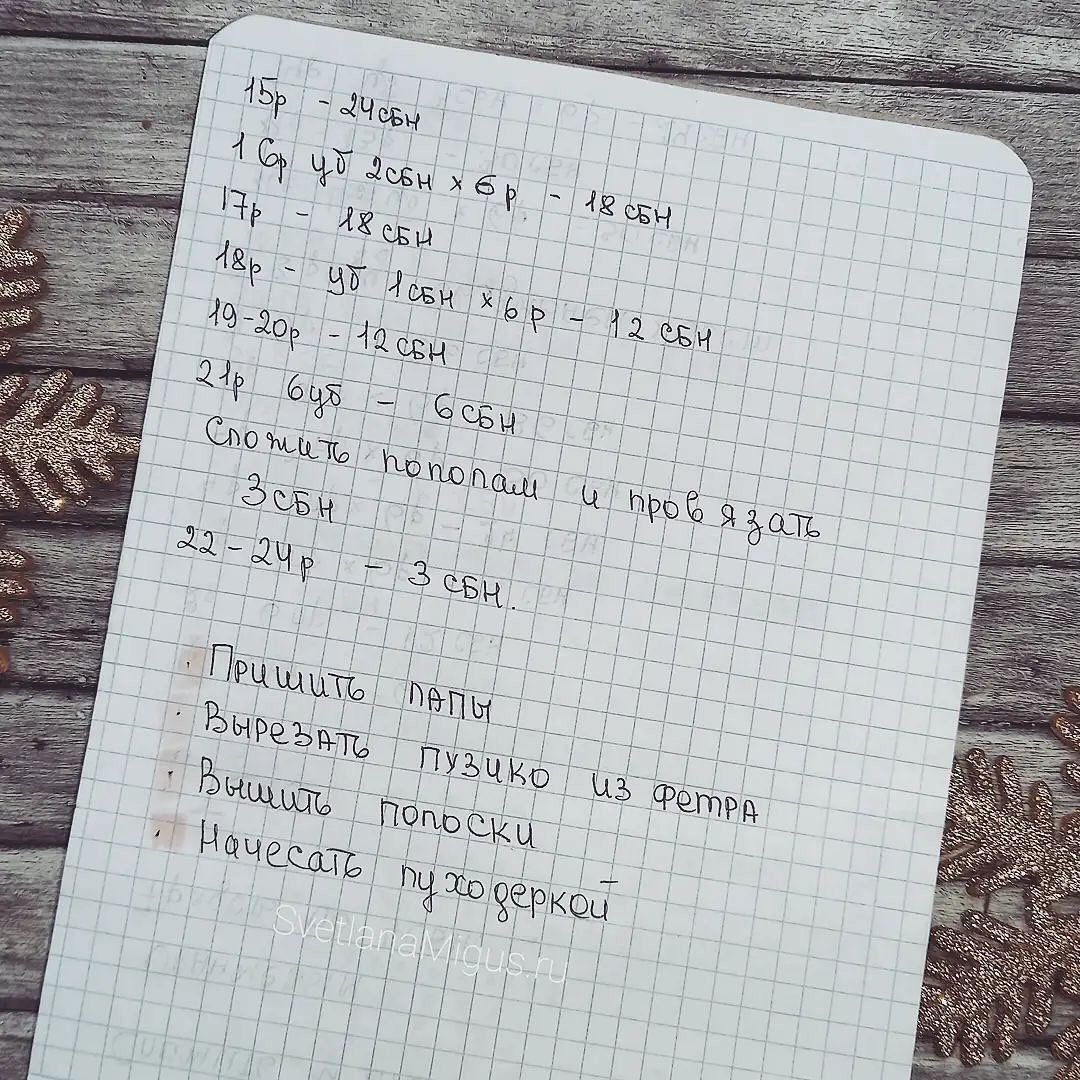 15р - 24сбн
16р уб 2сбн x 6р. - 18сбн
17р - 18сбн
18р - уб 1сбн x 6р - 12 сбн
19-20р - 12сбн
21р 6уб - 6сбн
Сложить пополам и провязать
3сбн
22-24р - 3сбн.
· Пришить лапы
· Вырезать пузико из фетра
· Вышить полоски
· Начесать пуходеркой
SvetlanaMigus.ru